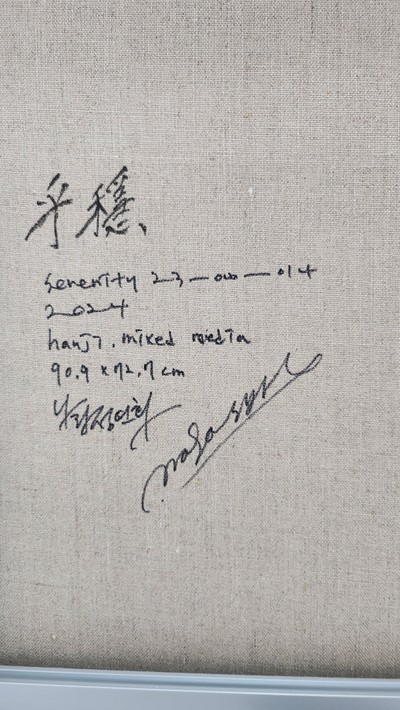 平穩
serenity 23-00-014
2024
hanji, mixed media
90.9 x 72.7 cm